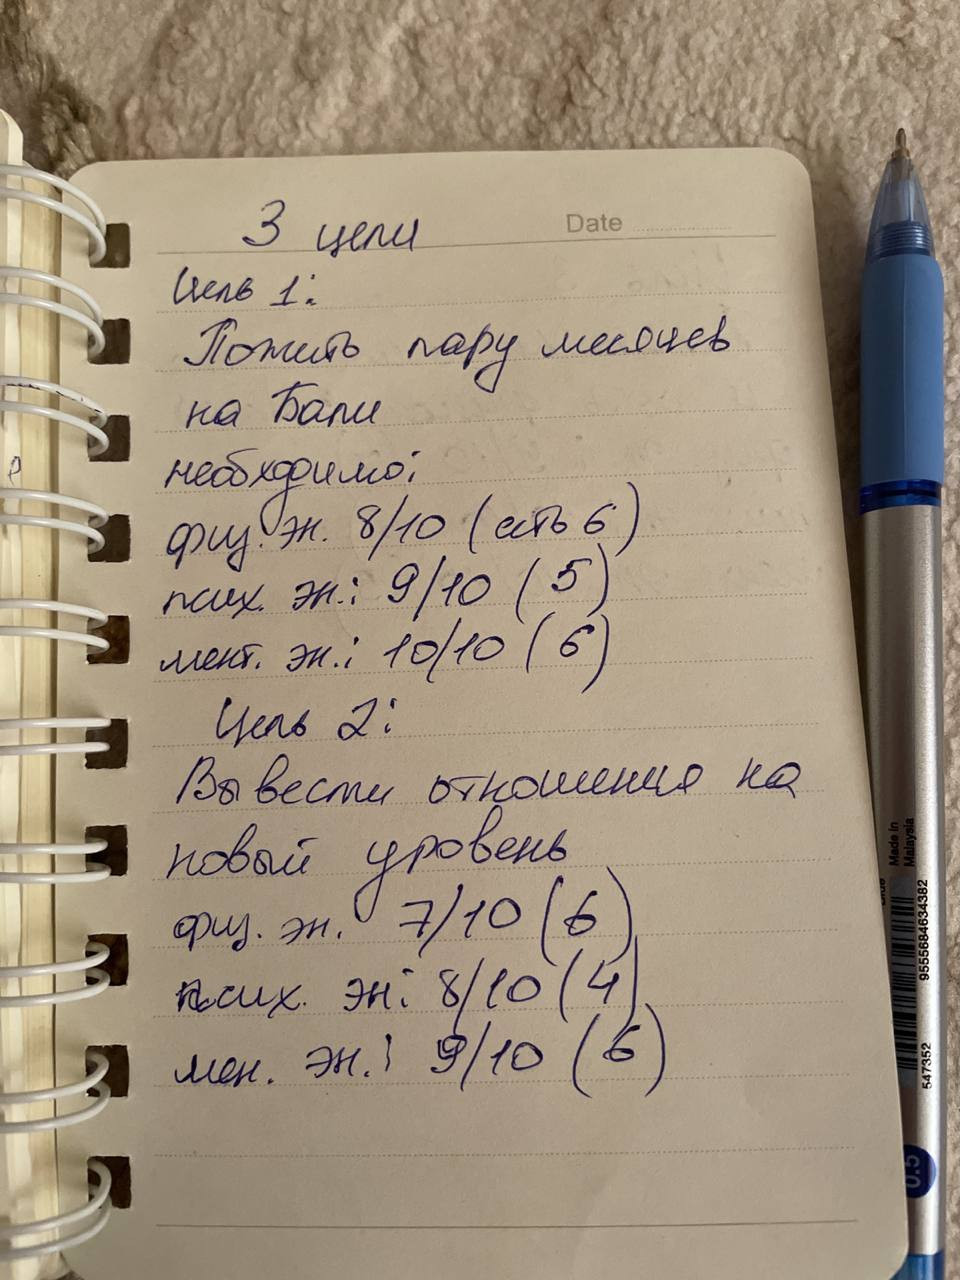 3 цели
Date
Цель 1:
Пожить пару месяцев
на Бали
необходимо:
физ. эн. 8/10 (есть 6)
псих. эн.: 9/10 (5)
мент. эн.: 10/10 (6)
Цель 2:
Вывести отношения на
новый уровень
физ. эн. 7/10 (6)
псих. эн: 8/10 (4)
мен. эн.: 9/10 (6)
Made in
Malaysia
9555684634382
547352
0.5